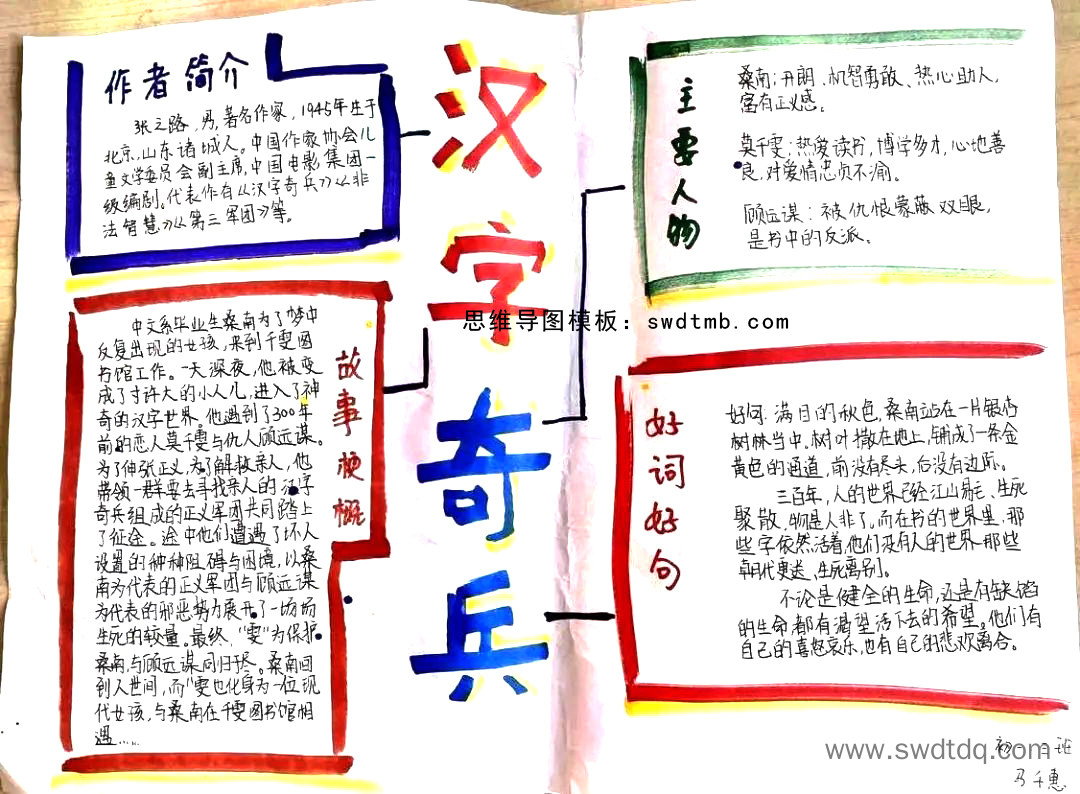 作者简介
张之路,男,著名作家,1945年生于
北京,山东诸城人。中国作家协会儿
童文学委员会副主席,中国电影集团一
级编剧。代表作有《汉字奇兵》《非
法智慧》《第三军团》等。
故事梗概
中文系毕业生桑南为了梦中
反复出现的女孩,来到千雯图
书馆工作。一天深夜,他被变
成了寸许大的小人儿,进入了神
奇的汉字世界。他遇到了300年
前的恋人莫千雯与仇人顾远谋。
为了伸张正义,为了解救亲人,他
带领一群要去寻找亲人的汉字
奇兵组成的正义军团共同踏上
了征途。途中他们遭遇了坏人
设置的种种阻碍与困境,以桑
南为代表的正义军团与顾远谋
为代表的邪恶势力展开了一场
生死的较量。最终,“雯”为保护
桑南,与顾远谋同归于尽。桑南回
到人世间,而“雯也化身为一位现
代女孩,与桑南在千雯图书馆相
遇……
汉字奇兵
主要人物
桑南:开朗、机智勇敢、热心助人,
富有正义感。
莫千雯:热爱读书,博学多才,心地善
良,对爱情忠贞不渝。
顾远谋:被仇恨蒙蔽双眼,
是书中的反派。
好词好句
好句:满目的秋色,桑南站在一片银杏
树林当中,树叶撒在地上,铺成了一条金
黄色的通道,前没有尽头,后没有边际。
三百年,人的世界已经江山易主、生死
聚散,物是人非了,而在书的世界里,那
些字依然活着,他们没有人的世界那些
朝代更迭、生死离别。
不论是健全的生命,还是有缺陷
的生命都有渴望活下去的希望。他们有
自己的喜怒哀乐,也有自己的悲欢离合。
初一 二班
马千惠
思维导图模板:swdtmb.com
www.swdtdq.com